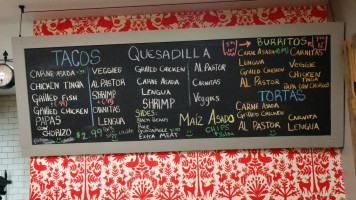 TACOS
CARNE ASADA
CHICKEN TINGA
GRILLED FISH
GRILLED CHICKEN
PAPAS
CON
CHORIZO
VEGGIES
AL PASTOR
SHRIMP
CARNITAS
LENGUA
$1.99
QUESADILLA
GRILLED CHICKEN
CARNE ASADA
GRILLED CHICKEN
LENGUA
SHRIMP
AL PASTOR
CARNITAS
VEGGIES
SIDES:
GUACAMOLE
EXTRA MEAT
MAIZ ASADO
CHIPS
BURRITOS
CARNE ASADA
LENGUA
GRILLED CHICKEN
AL PASTOR
CARNITAS
VEGGIE
CHICKEN
TINGA
PAPA CON CHORIZO
TORTAS
CARNE ASADA
GRILLED CHICKEN
AL PASTOR
CARNITA
LENGUA